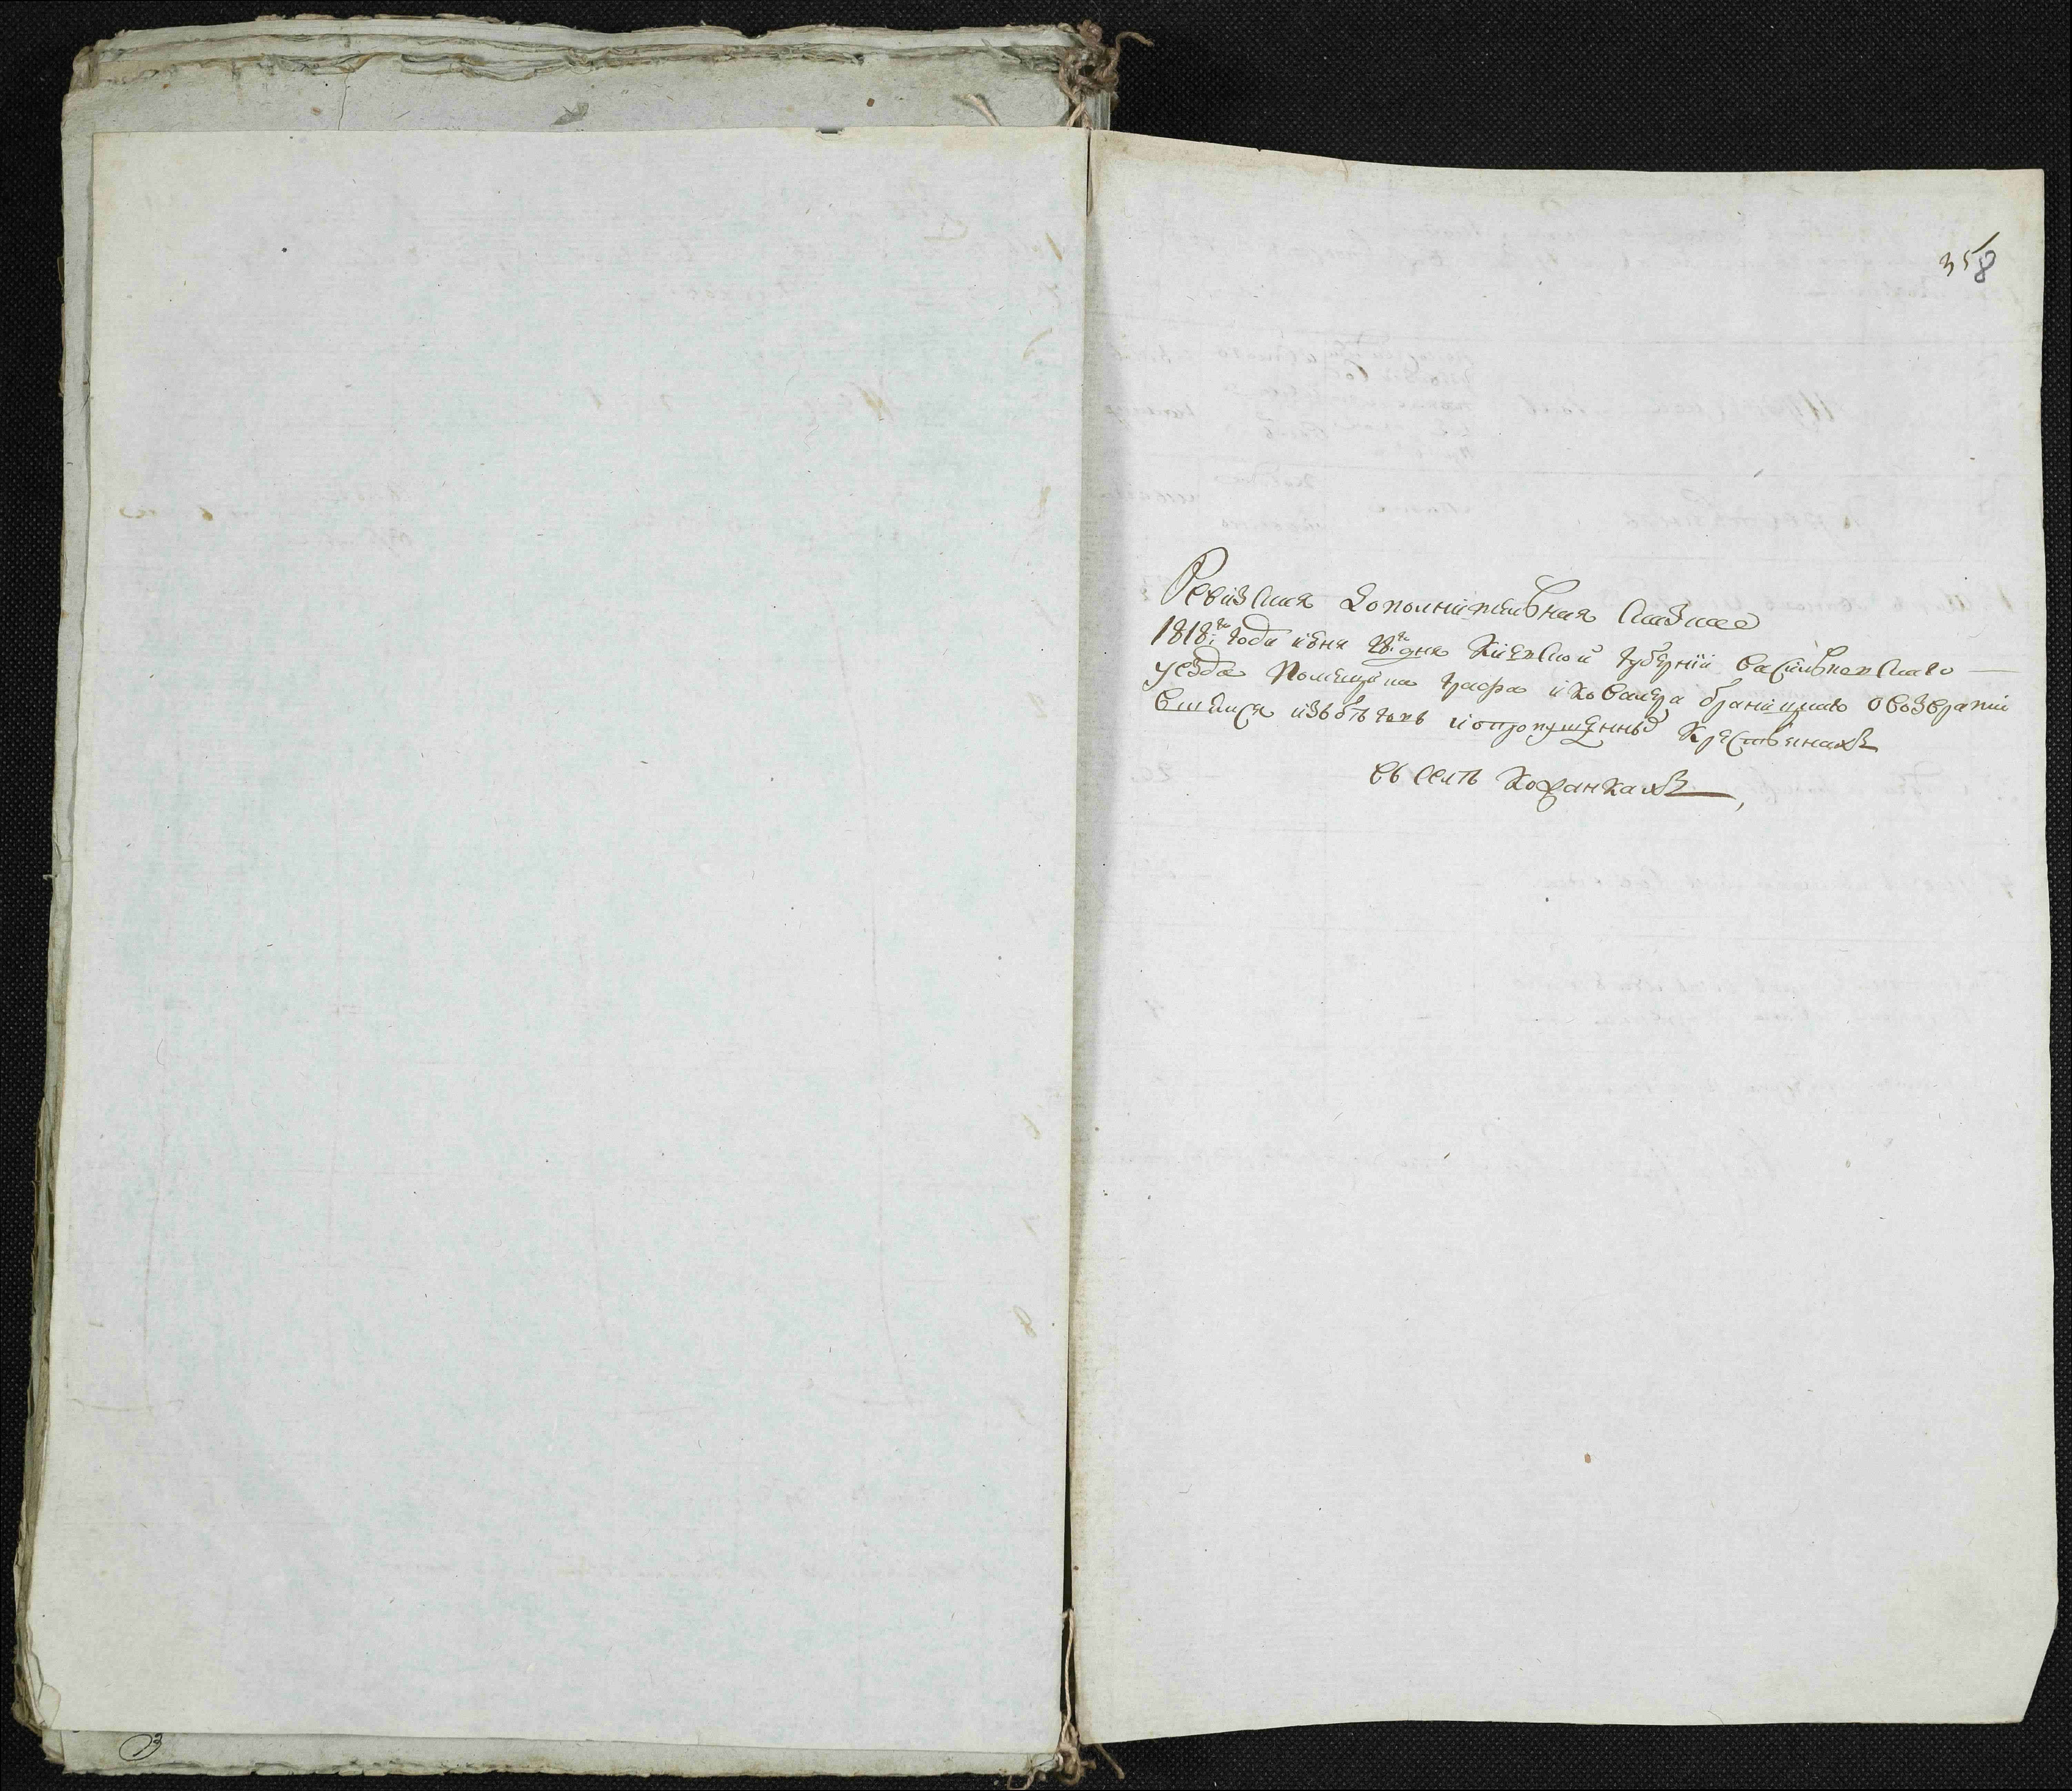 358
Ревизская дополнительная Сказка
1818го года июня 28го дня Киевской губернии васильковскаго
уезда Помещика графа и Ковалера браницкаго овозврати
вшимся избегов и опропущенных Крестьянахъ
въ селе Коханках